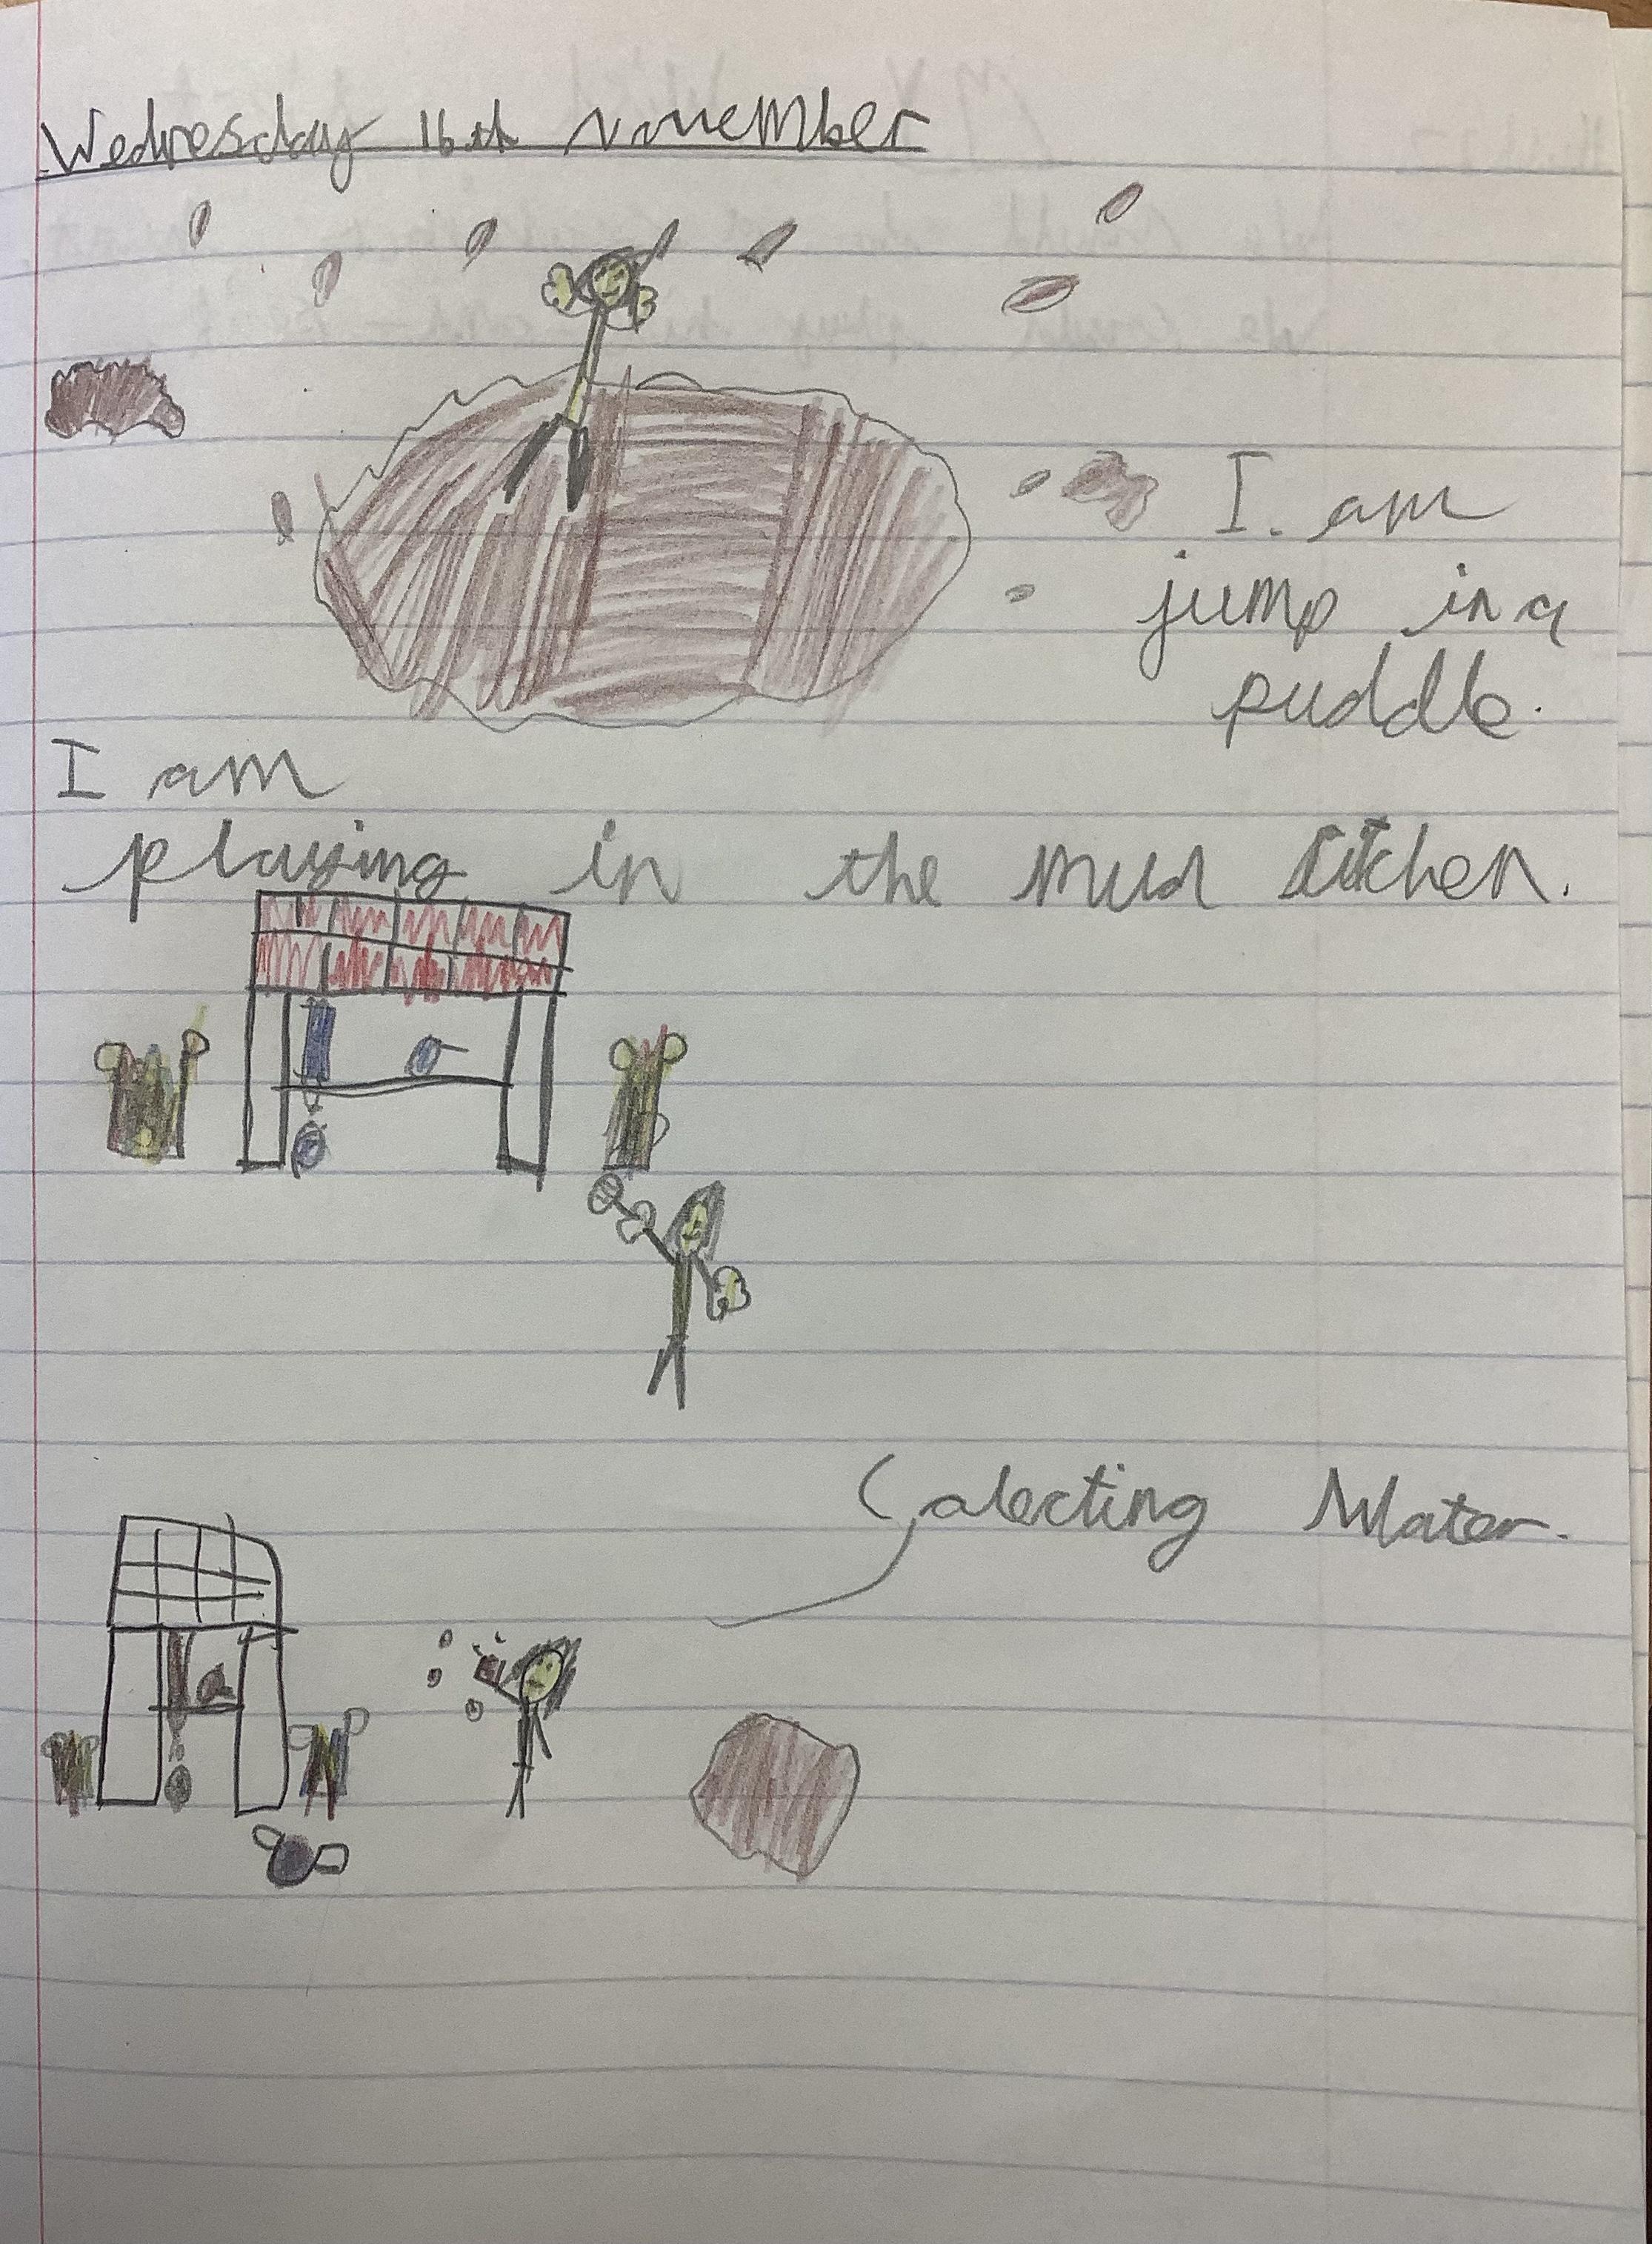 Wednesday 16th november
I am
jump in a
puddle.
I am
playing in the mud kitchen.
Calecting Water.